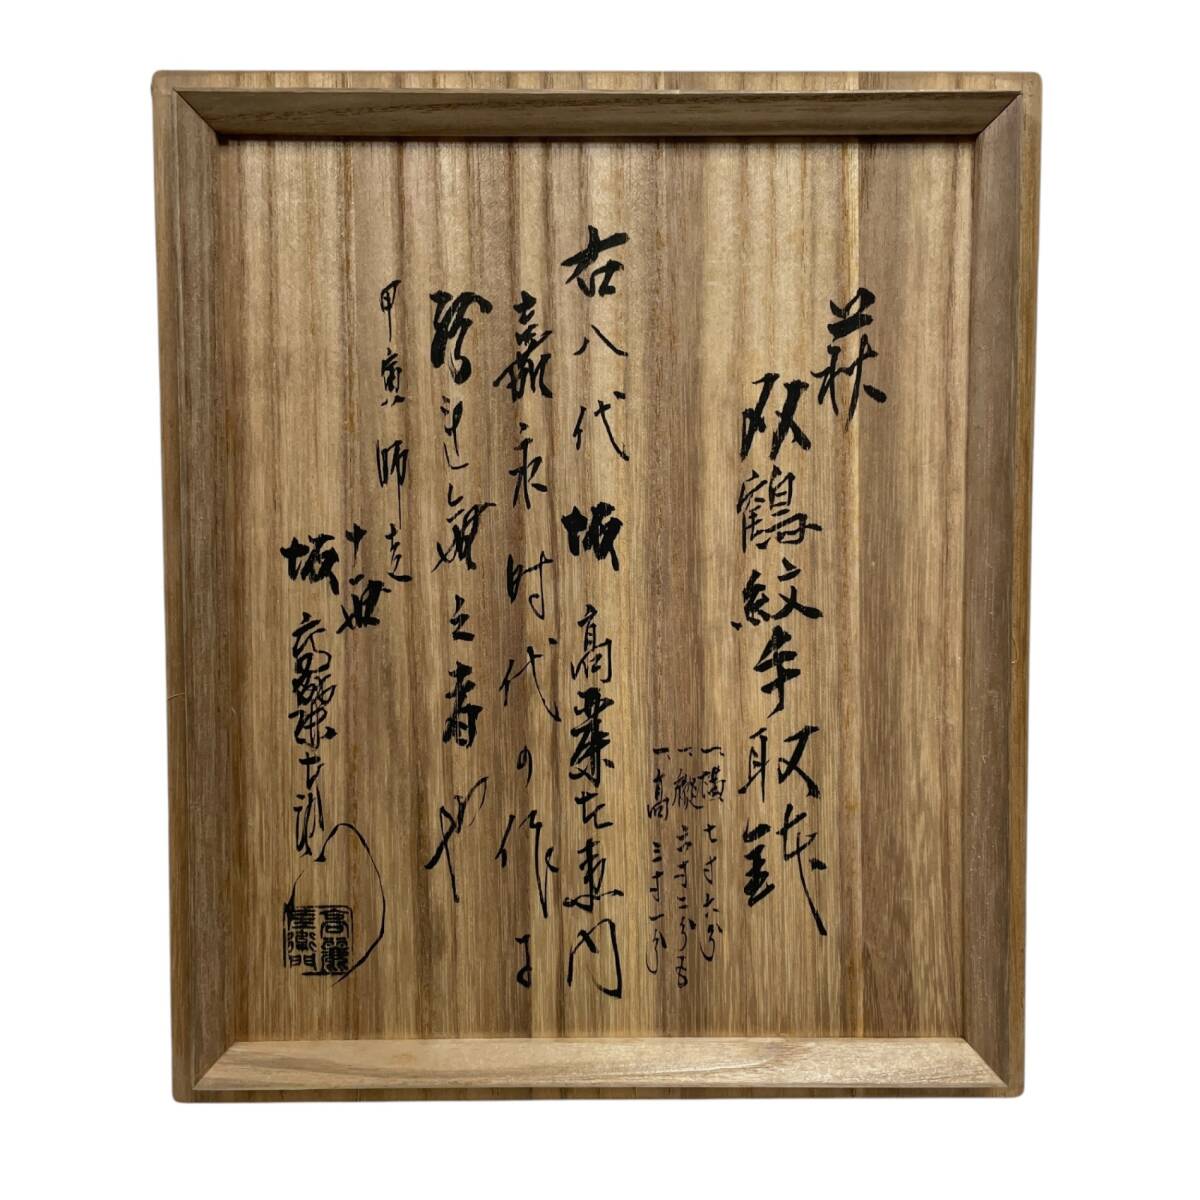 萩
双鶴紋手取鉢
一、横七寸六分
一、縦六寸二分五
一、高三寸一分
右八代坂高麗左衛門
嘉永時代の作に
紛連無之者也
甲寅師走
十一世
坂高麗左衛門
高麗左衛門